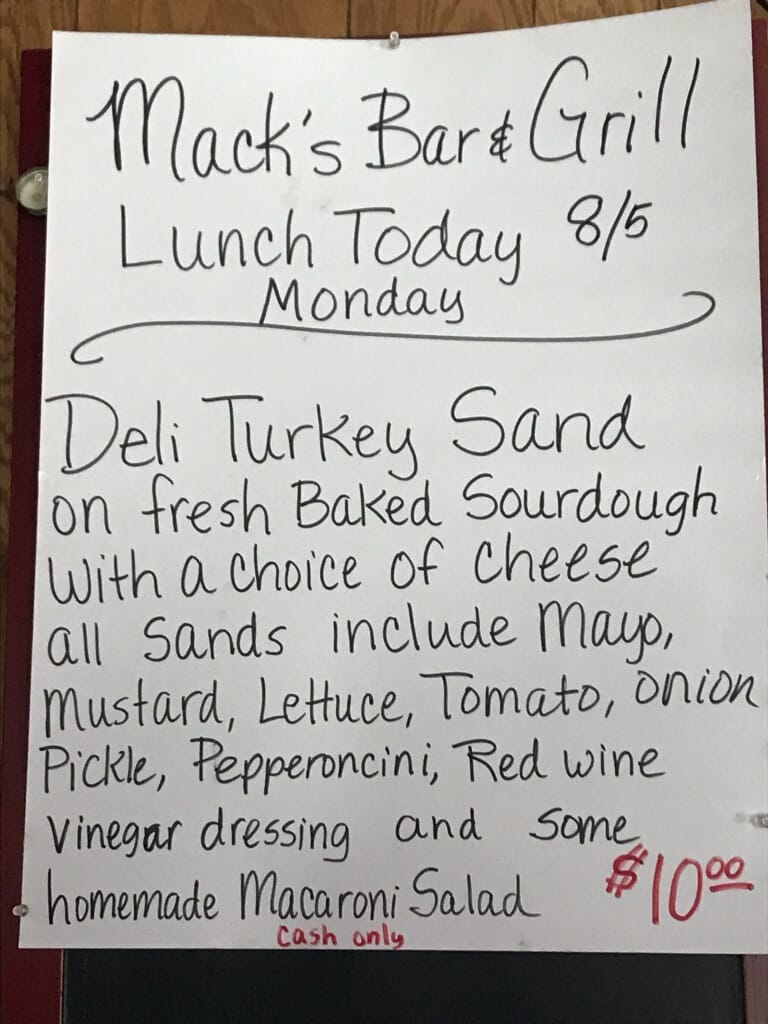 Mack's Bar & Grill
Lunch Today 8/5
Monday
Deli Turkey Sand
on fresh Baked Sourdough
With a choice of cheese
all Sands include Mayo,
Mustard, Lettuce, Tomato, onion
Pickle, Pepperoncini, Red wine
Vinegar dressing and some
homemade Macaroni Salad $10.00
Cash only